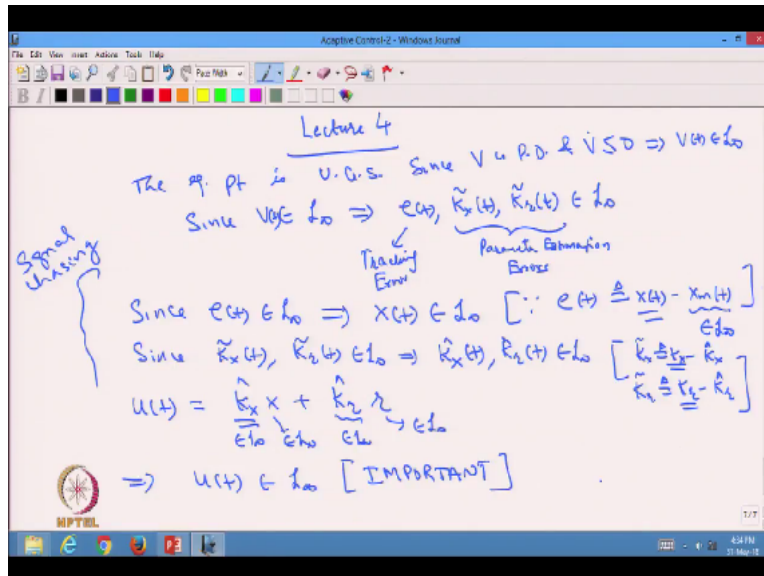 Adaptive Control-2 - Windows Journal
File Edit View Insert Actions Tools Help
Page Width
B I
Lecture 4
The eq. pt is U.G.S. Since V is P.D. & V̇ ≤ 0 ⇒ V(t) ∈ L∞
Since V(t) ∈ L∞ ⇒ e(t), K̃x(t), K̃r(t) ∈ L∞
Tracking Error
Parameter Estimation Errors
Signal chasing
Since e(t) ∈ L∞ ⇒ x(t) ∈ L∞ [∵ e(t) ≜ x(t) - xm(t)]
∈ L∞
Since K̃x(t), K̃r(t) ∈ L∞ ⇒ K̂x(t), K̂r(t) ∈ L∞ [K̃x ≜ Kx - K̂x
K̃r ≜ Kr - K̂r]
u(t) = K̂x x + K̂r r
∈ L∞ ∈ L∞ ∈ L∞ → ∈ L∞
⇒ u(t) ∈ L∞ [IMPORTANT]
NPTEL
7/7
4:54 PM
31-May-18